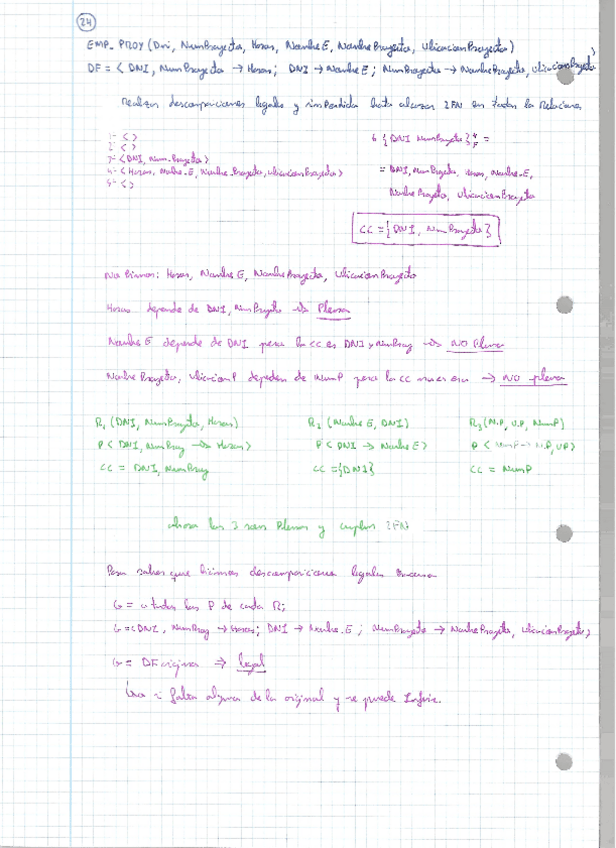 24
EMP_PROY (Dni, NumProyecto, Horas, NombreE, NombreProyecto, UbicacionProyecto)
DF = < DNI, NumProyecto → Horas; DNI → NombreE; NumProyecto → NombreProyecto, UbicacionProyecto >
realizar descomposiciones legales y sin Perdida hasta alcanzar 2FN en todas las Relaciones
1- < >
2- < >
3- <DNI, Num_Proyecto>
4- <Horas, Nombre_E, Nombre_Proyecto, UbicacionProyecto>
5- < >
{DNI NumProyecto} =
= DNI, NumProyecto, Horas, Nombre_E,
NombreProyecto, UbicacionProyecto
CC = {DNI, NumProyecto}
No Primos: Horas, NombreE, NombreProyecto, UbicacionProyecto
Horas depende de DNI, NumProyecto → Plena
NombreE depende de DNI pero la CC es DNI y NumProy → NO Plena
NombreProyecto, UbicacionP dependen de NumP pero la CC → NO plena
R1 (DNI, NumProyecto, Horas)
P < DNI, NumProy → Horas >
CC = DNI, NumProy
R2 (NombreE, DNI)
P < DNI → NombreE >
CC = {DNI}
R3 (N.P, U.P, NumP)
P < NumP → N.P, U.P >
CC = NumP
ahora las 3 son Plenas y cumplen 2FN
Para saber que hicimos descomposiciones legales
G = a todas las P de cada Ri
G = < DNI, NumProy → Horas; DNI → Nombre_E; NumProyecto → NombreProyecto, UbicacionProyecto >
G = DF origina ⇒ legal
falta alguna de la original y se puede Inferir.